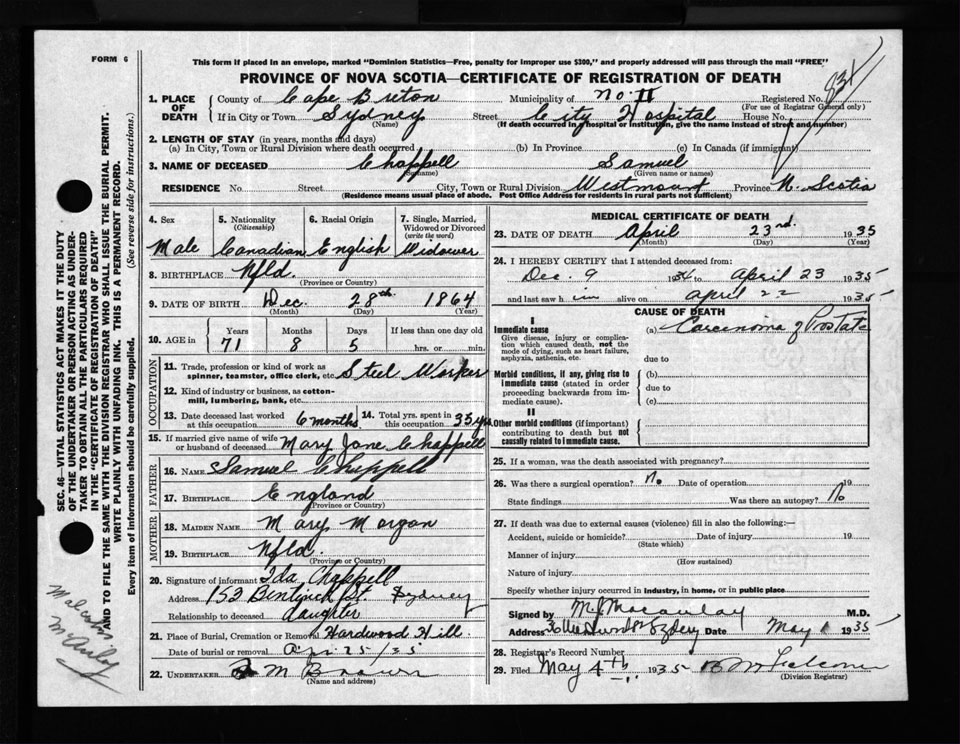 FORM 6
This form if placed in an envelope, marked "Dominion Statistics—Free, penalty for improper use $300," and properly addressed will pass through the mail "FREE"
PROVINCE OF NOVA SCOTIA—CERTIFICATE OF REGISTRATION OF DEATH
831
1. PLACE OF DEATH { County of Cape Breton Municipality of No. 11 Registered No.
(For use of Registrar General only)
If in City or Town Sydney Street City Hospital House No.
(Name) (If death occurred in hospital or institution, give the name instead of street and number)
2. LENGTH OF STAY (in years, months and days)
(a) In City, Town or Rural Division where death occurred (b) In Province (c) In Canada (if immigrant)
3. NAME OF DECEASED Chappell Samuel
(Surname) (Given name or names)
RESIDENCE No. Street City, Town or Rural Division Westmount Province N. Scotia
(Residence means usual place of abode. Post Office Address for residents in rural parts not sufficient)
SEC. 46—VITAL STATISTICS ACT MAKES IT THE DUTY
OF THE UNDERTAKER OR PERSON ACTING AS UNDER-
TAKER TO OBTAIN ALL THE PARTICULARS REQUIRED
IN THE "CERTIFICATE OF REGISTRATION OF DEATH"
AND TO FILE THE SAME WITH THE DIVISION REGISTRAR WHO SHALL ISSUE THE BURIAL PERMIT.
WRITE PLAINLY WITH UNFADING INK. THIS IS A PERMANENT RECORD.
Every item of information should be carefully supplied. (See reverse side for instructions.)
4. Sex 5. Nationality 6. Racial Origin 7. Single, Married,
(Citizenship) Widowed or Divorced
(write the word)
Male Canadian English Widower
8. BIRTHPLACE Nfld.
(Province or Country)
9. DATE OF BIRTH Dec. 28th 1864
(Month) (Day) (Year)
10. AGE in Years Months Days If less than one day old
71 8 5 hrs. or min.
OCCUPATION
11. Trade, profession or kind of work as
spinner, teamster, office clerk, etc. Steel Worker
12. Kind of industry or business, as cotton-
mill, lumbering, bank, etc.
13. Date deceased last worked 14. Total yrs. spent in
at this occupation 6 months this occupation 35 yrs
15. If married give name of wife
or husband of deceased Mary Jane Chappell
FATHER
16. NAME Samuel Chappell
17. BIRTHPLACE England
(Province or Country)
MOTHER
18. MAIDEN NAME Mary Morgan
19. BIRTHPLACE Nfld.
(Province or Country)
20. Signature of informant Ida Chappell
Address 152 St. Sydney
Relationship to deceased daughter
21. Place of Burial, Cremation or Removal Hardwood Hill
Date of burial or removal Apr 25/35
22. UNDERTAKER
(Name and address)
MEDICAL CERTIFICATE OF DEATH
23. DATE OF DEATH April 23rd. 1935
(Month) (Day) (Year)
24. I HEREBY CERTIFY that I attended deceased from:
Dec. 9 1934 to April 23 1935
and last saw him alive on April 22 1935
CAUSE OF DEATH
I
Immediate cause (a) Carcinoma of Prostate
Give disease, injury or complica-
tion which caused death, not the
mode of dying, such as heart failure,
asphyxia, asthenia, etc. due to
Morbid conditions, if any, giving rise to (b)
immediate cause (stated in order due to
proceeding backwards from im-
mediate cause). (c)
II
Other morbid conditions (if important)
contributing to death but not
causally related to immediate cause.
25. If a woman, was the death associated with pregnancy?
26. Was there a surgical operation? No Date of operation 19
State findings Was there an autopsy? No
27. If death was due to external causes (violence) fill in also the following:—
Accident, suicide or homicide? Date of injury 19
(State which)
Manner of injury
(How sustained)
Nature of injury
Specify whether injury occurred in industry, in home, or in public place
Signed by M. J. Macaulay M.D.
Address Date May 1 1935
28. Registrar's Record Number
29. Filed May 4th 1935
(Division Registrar)